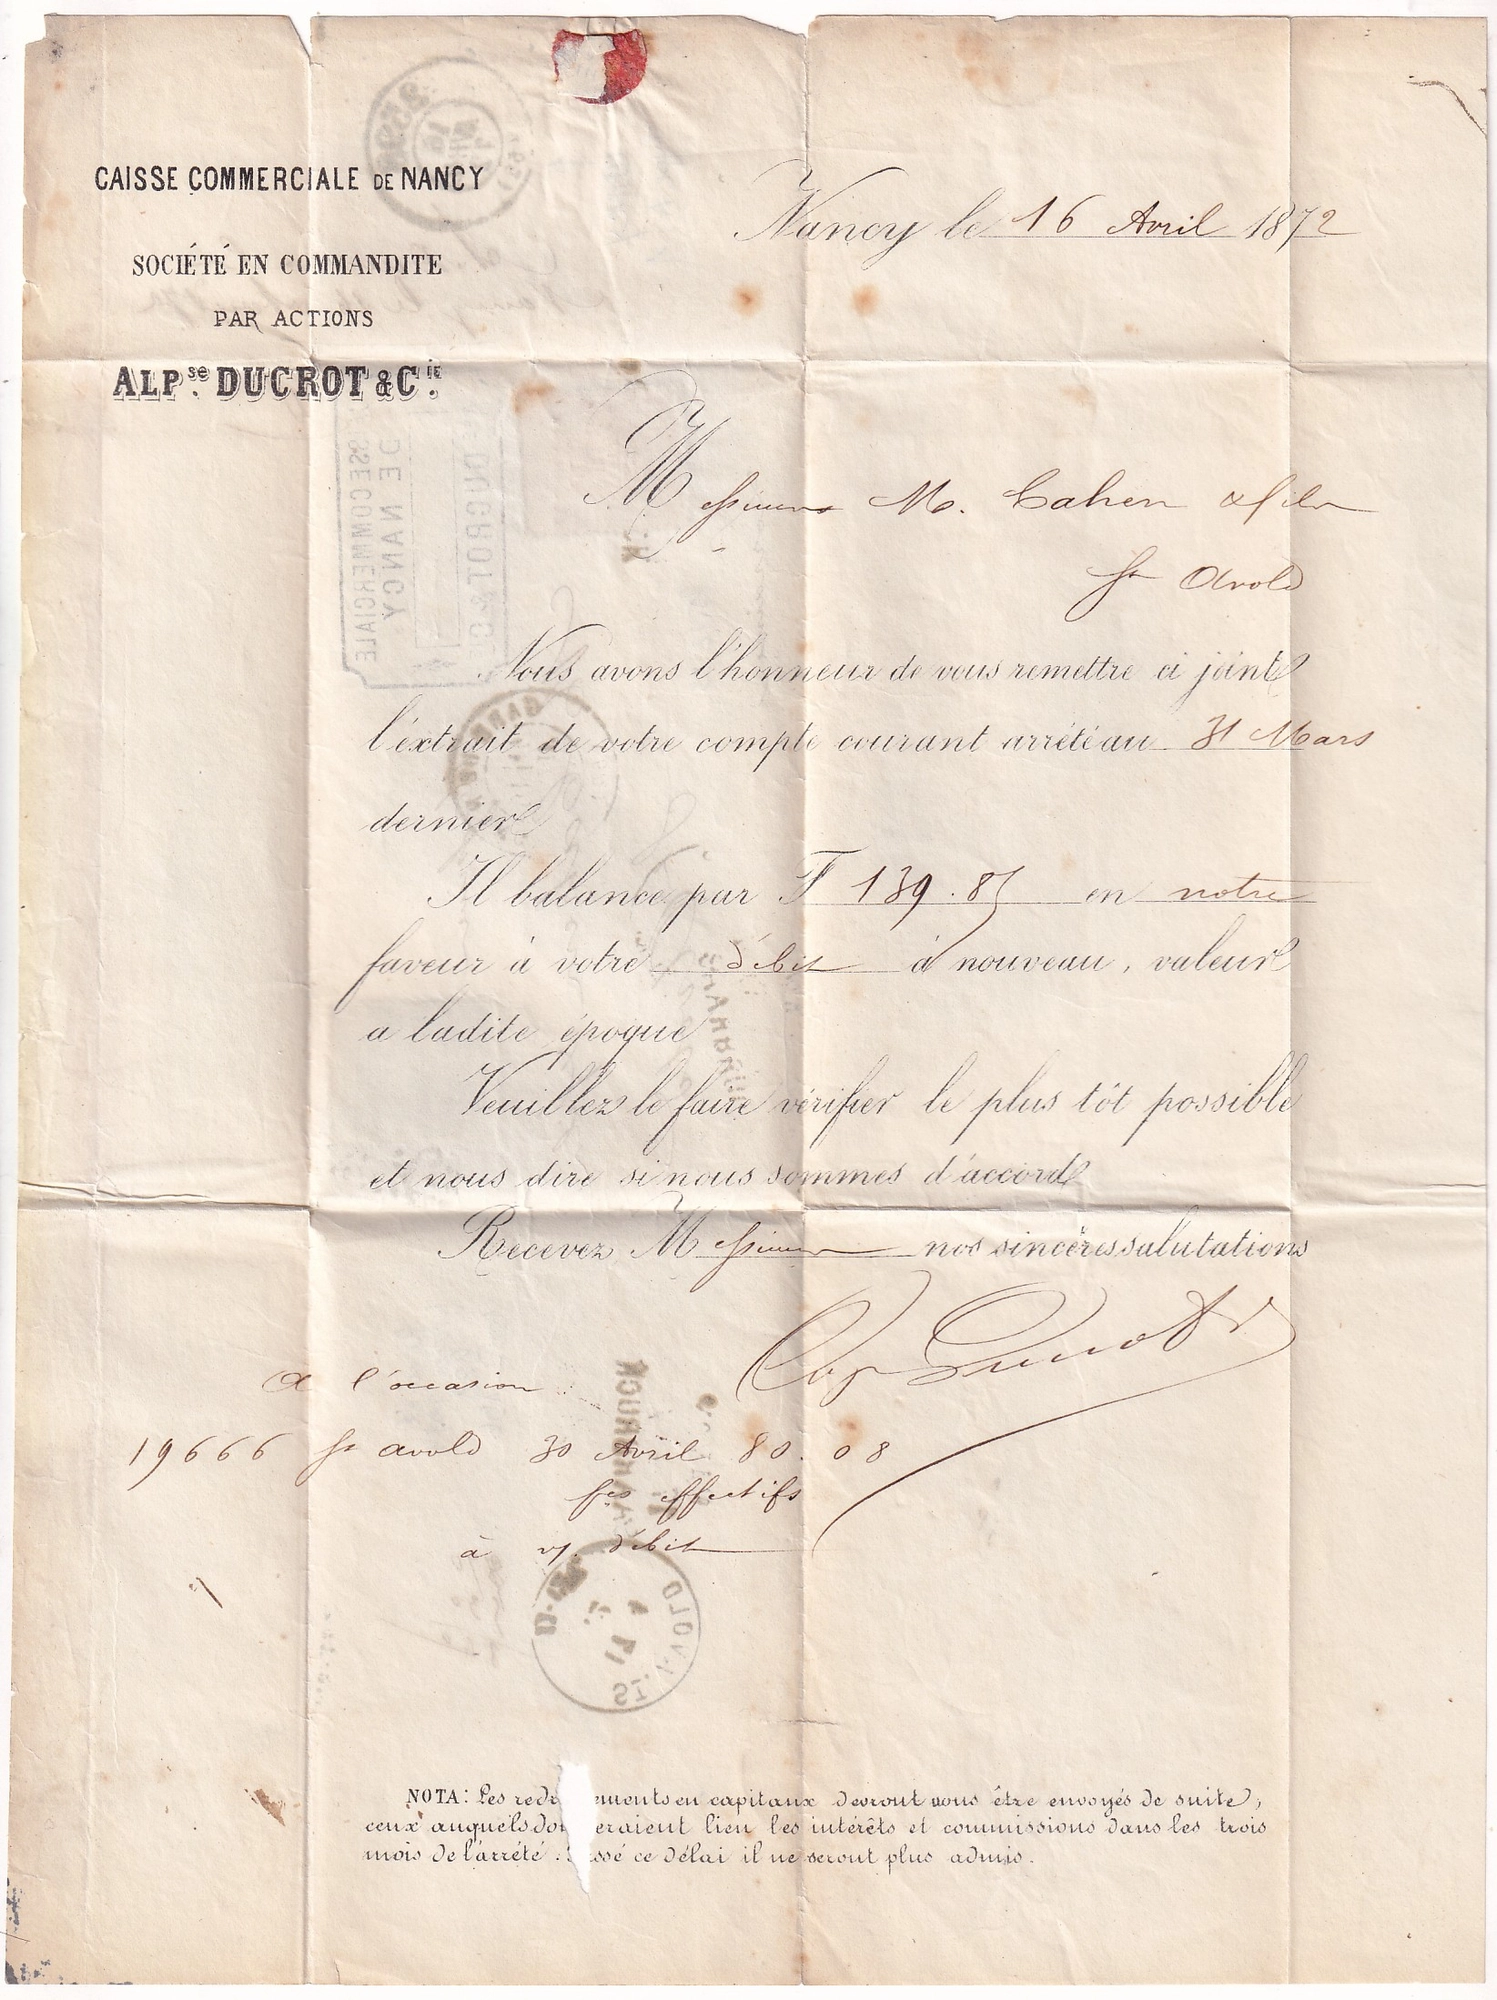 CAISSE COMMERCIALE DE NANCY
SOCIÉTÉ EN COMMANDITE
PAR ACTIONS
ALPse. DUCROT & Cie.
Nancy le 16 Avril 1872
Messieurs M. Cahen & fils
St Avold
Nous avons l'honneur de vous remettre ci joint
l'éxtrait de votre compte courant arrété au 31 Mars
dernier
Il balance par F 139.85 en notre
faveur à votre débit à nouveau, valeur
a ladite époque
Veuillez le faire vérifier le plus tôt possible
et nous dire si nous sommes d'accord
Recevez Messieurs nos sincères salutations
Ducrot
A l'occasion
19666 St Avold 30 Avril 80.08
fcs effectifs
à v/. débit
NOTA: Les redr ements en capitaux devront nous être envoyés de suite;
ceux auquels do eraient lieu les intérêts et commissions dans les trois
mois de l'arrété. ssé ce délai il ne seront plus admis.
ST. AVOLD